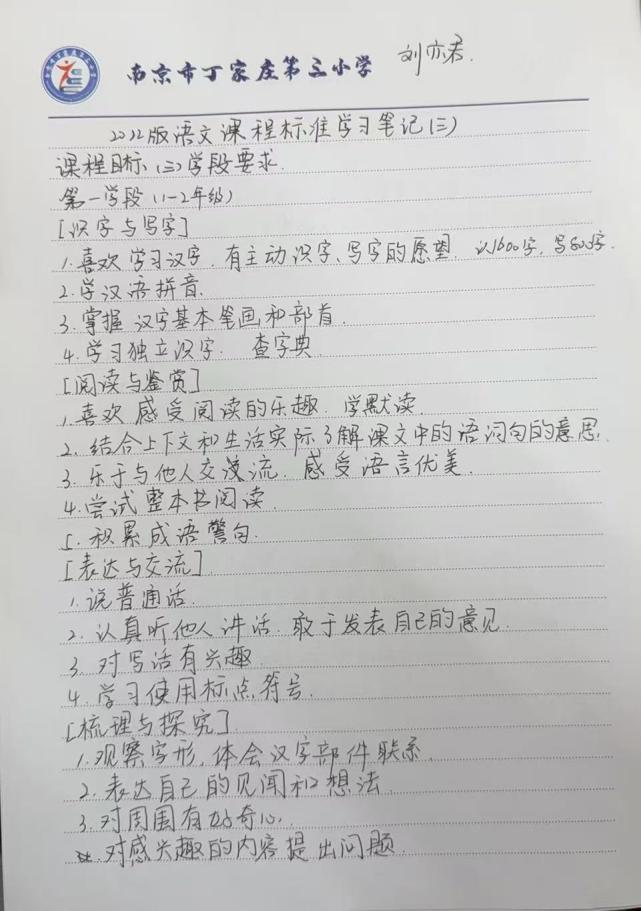 南京市丁家庄第三小学 刘亦君.
2022版语文课程标准学习笔记(三)
课程目标(三)学段要求.
第一学段(1-2年级)
[识字与写字]
1.喜欢学习汉字.有主动识字、写字的愿望. 认1600字,写800字.
2.学汉语拼音.
3.掌握汉字基本笔画和部首.
4.学习独立识字. 查字典
[阅读与鉴赏]
1.喜欢感受阅读的乐趣.学默读.
2.结合上下文和生活实际了解课文中的语词句的意思.
3.乐于与他人交流.感受语言优美.
4.尝试整本书阅读.
5.积累成语警句.
[表达与交流]
1.说普通话.
2.认真听他人讲话.敢于发表自己的意见.
3.对写话有兴趣.
4.学习使用标点符号.
[梳理与探究]
1.观察字形,体会汉字部件联系.
2.表达自己的见闻和想法.
3.对周围有好奇心.
对感兴趣的内容提出问题.